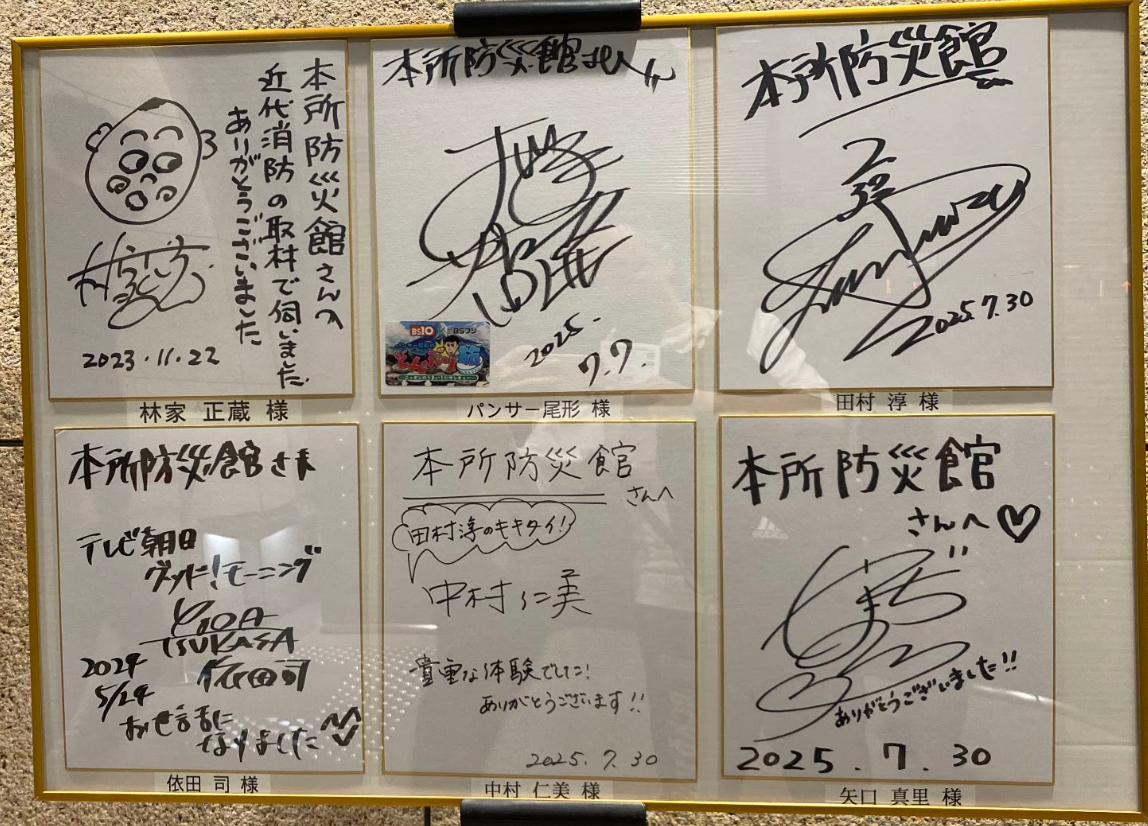 本所防災館さんへ
近代消防の取材で伺いました
ありがとうございました
2023.11.22
林家 正蔵 様
本所防災館さんへ
BS10
BSフジ
2025.
7.7.
パンサー尾形 様
本所防災館
2025.7.30
田村 淳 様
本所防災館さま
テレビ朝日
グッド!モーニング
YODA
TSUKASA
依田司
2024
5/24
お世話に
なりました
依田 司 様
本所防災館
さんへ
田村淳のキキタイ!
中村仁美
貴重な体験でした!
ありがとうございます!!
2025.7.30
中村 仁美 様
本所防災館
さんへ♡
ありがとうございました!!
2025.7.30
矢口 真里 様